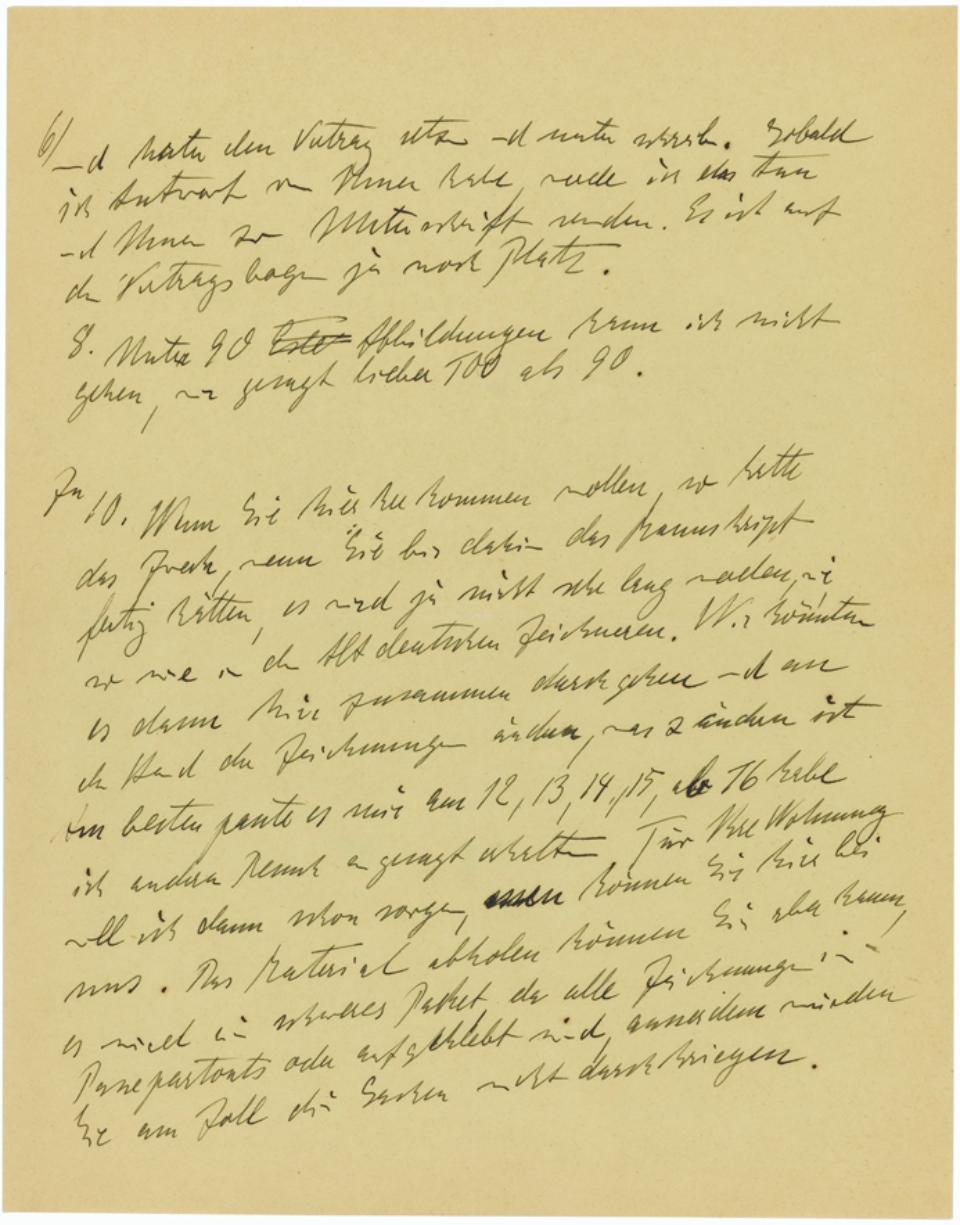 6/ und hinter den Vertrag setzen und unterschreib. Sobald
ich Antwort von Ihnen habe, werde ich das tun
und Ihnen zur Unterschrift senden. Es ist auf
den Vertragsbogen ja noch Platz.
8. Unter 90 Abbildungen kann ich nicht
gehen, wie gesagt lieber 100 als 90.
Zu 10. Wenn Sie hierher kommen wollen, so hätte
das Zweck, wenn Sie bis dahin das Manuskript
fertig hätten, es wird ja nicht sehr lang werden,
so wie in den Altdeutschen Zeichnungen. Wir könnten
es dann hier zusammen durchgehen und an
der Hand der Zeichnungen ändern, was zu ändern ist
Am besten passte es mir am 12, 13, 14, 15, ab 16 habe
ich andern Besuch angesagt erhalten. Für Ihre Wohnung
will ich dann schon sorgen, können Sie hier bei
uns. Das Material abholen können Sie aber kaum,
es wird ein schweres Packet, da alle Zeichnungen in
Passepartouts oder aufgeklebt sind, ausserdem würden
Sie am Zoll die Sachen nicht durchkriegen.